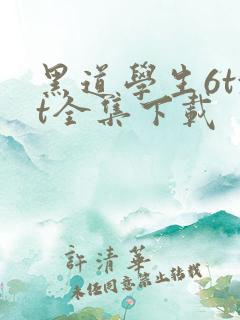 黑道學生6tx
t全集下載
許清華
未經同意禁止轉載